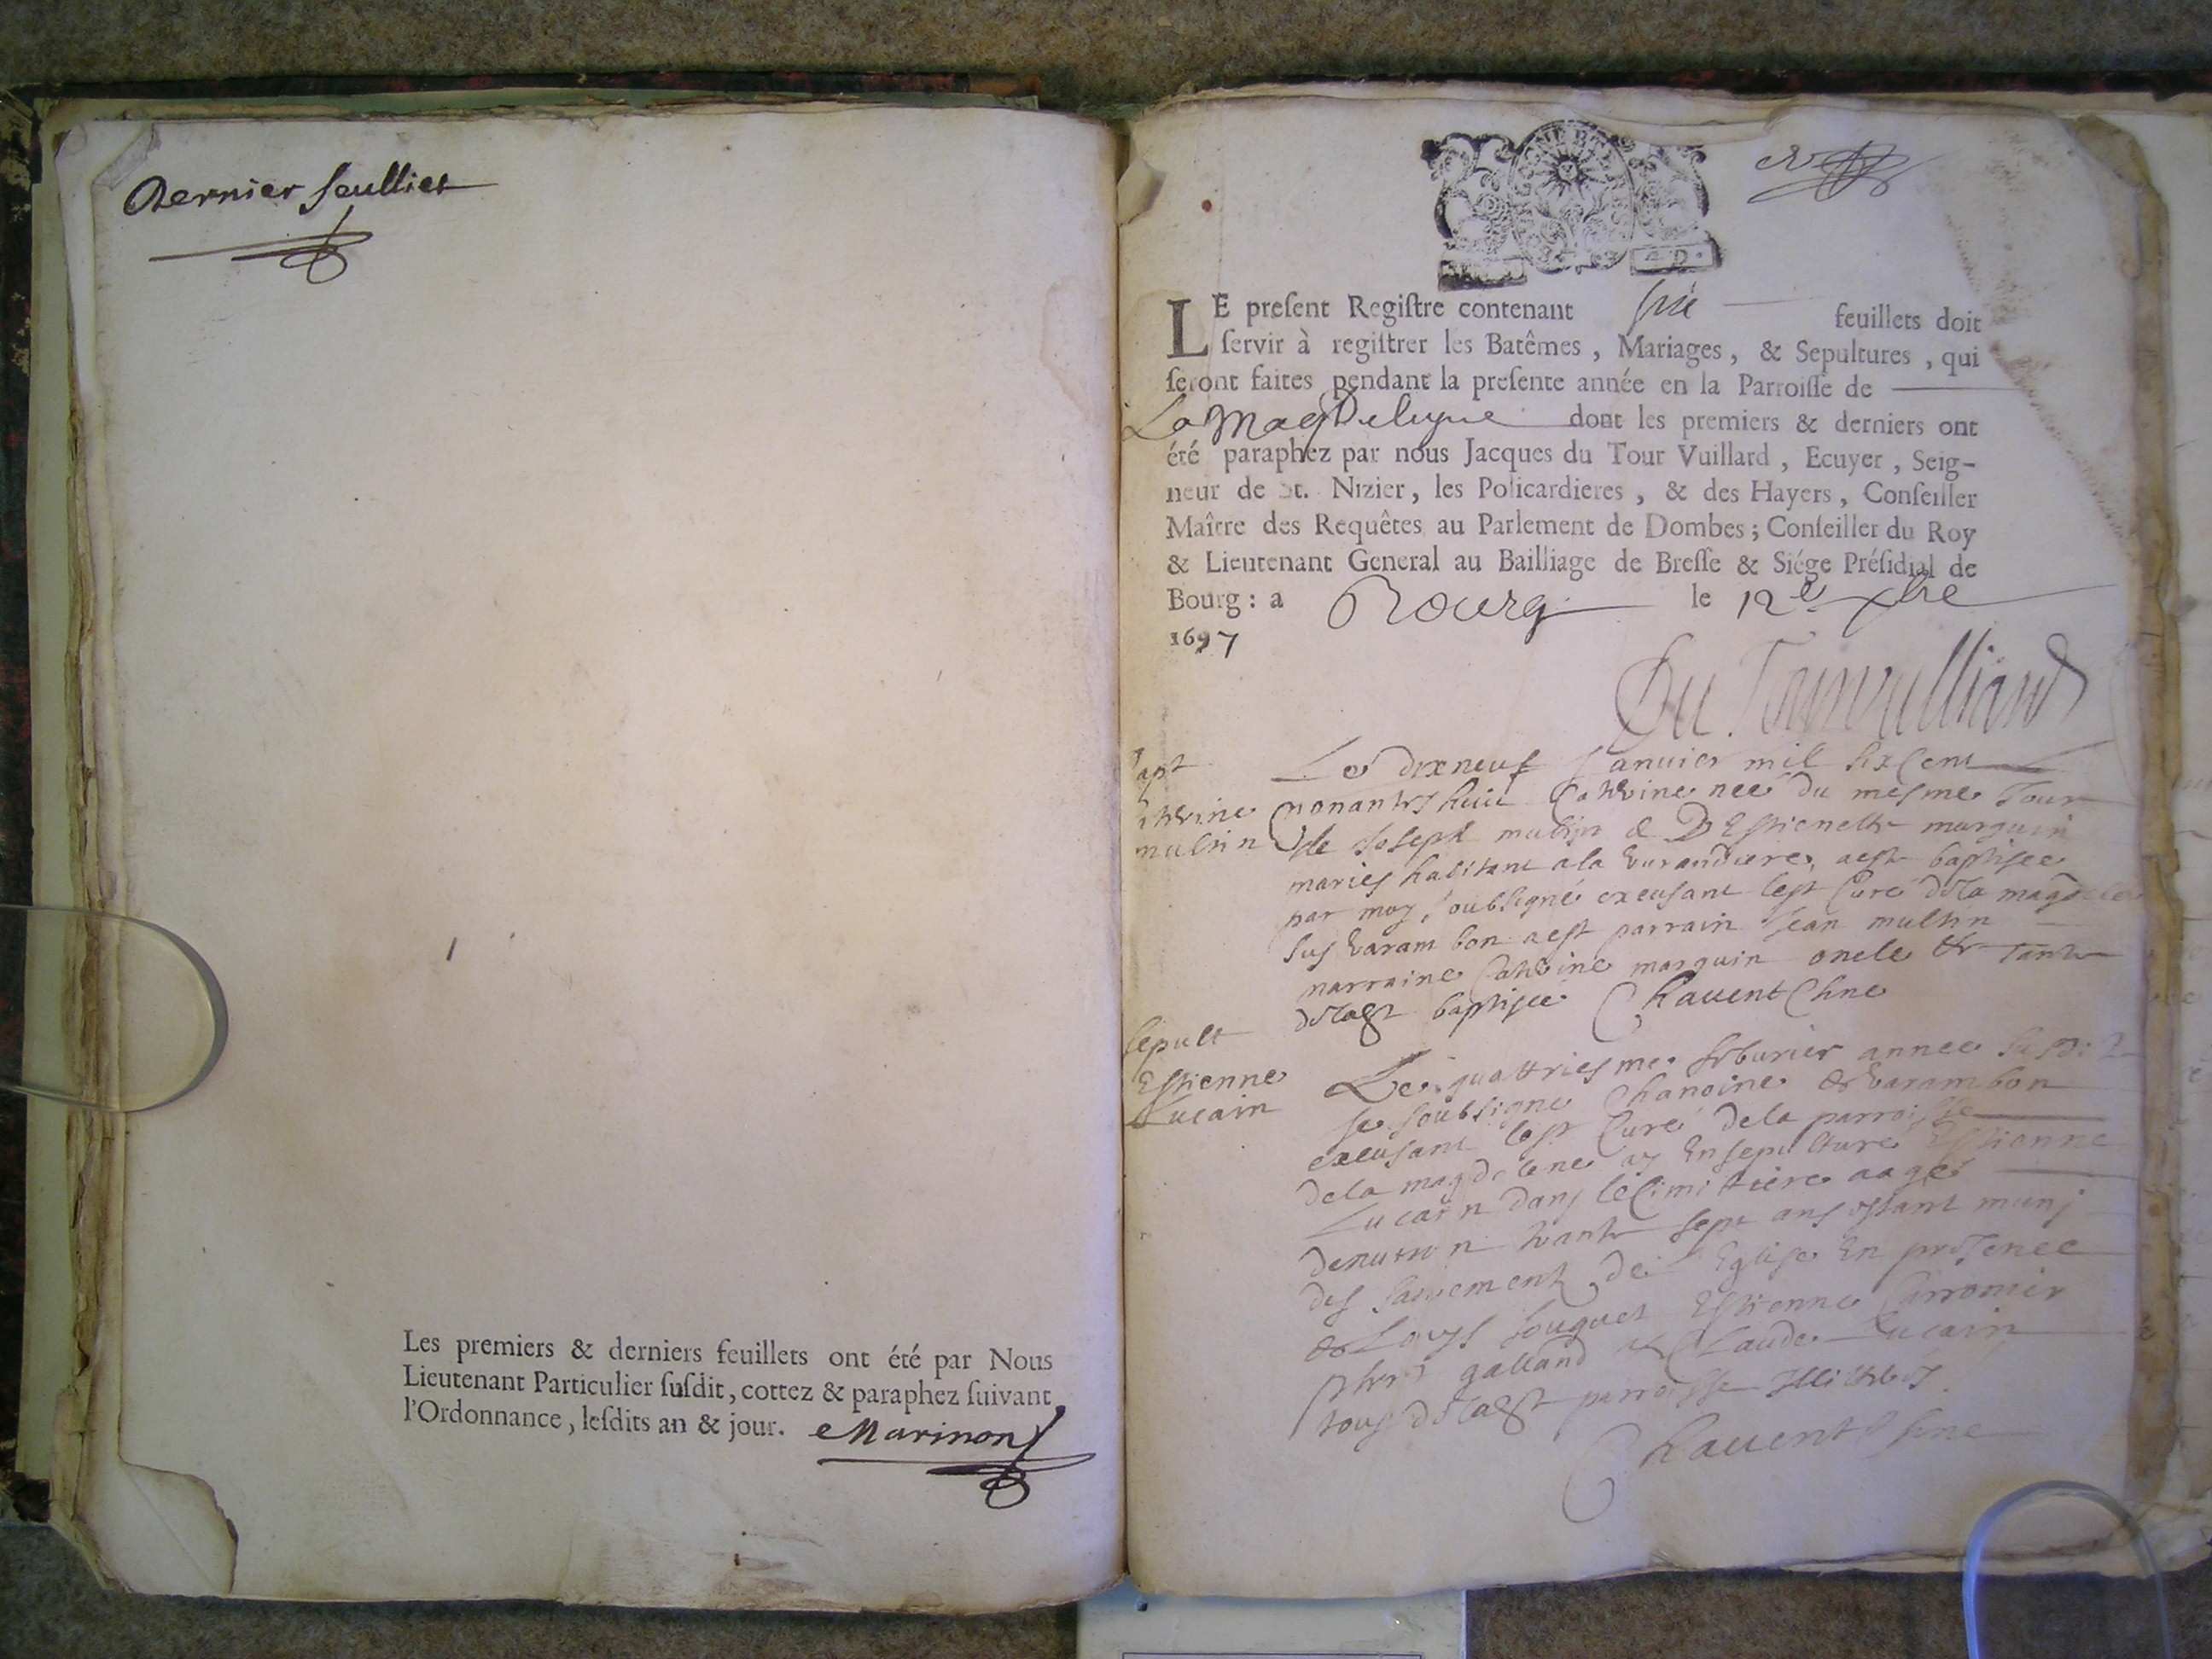 Dernier feulliet
Les premiers & derniers feuillets ont été par Nous
Lieutenant Particulier suſdit, cottez & paraphez ſuivant
l'Ordonnance, leſdits an & jour. Marinon
LE preſent Regiſtre contenant feuillets doit
ſervir à regiſtrer les Batêmes, Mariages, & Sepultures, qui
ſeront faites pendant la preſente année en la Parroiſſe de
La Magdeleyne dont les premiers & derniers ont
été paraphez par nous Jacques du Tour Vuillard, Ecuyer, Seig-
neur de St. Nizier, les Policardieres, & des Hayers, Conſeiller
Maître des Requêtes au Parlement de Dombes; Conſeiller du Roy
& Lieutenant General au Bailliage de Breſſe & Siége Préſidial de
Bourg: a Bourg le 12e xbre
1697
Du Tourvulliard
Le dixneuf Janvier mil six cent
nonante huit Catherine née du mesme Jour
de Joseph & D'Estienette marguin
maries habitant a la aesté baptisee
par moy soubsigné excusant Curé de la
sus Varambon a esté parrain Jean
marraine Catherine marguin oncle et tante
baptisée Chavent Chne
sepult
Estienne
Lucain
Le quattriesme feburier annee
Je soubsigne Chanoine de Varambon
excusant Curé dela parroisse
dela magdelene ay Ensepulturé Estienne
Lucain dans le Cimittiere aagé
sept ans estant muni
des sacrements de l'Eglise En presence
de Louys fouquet Estienne
galland et Claude Lucain
tous parroisse
Chavent Chne